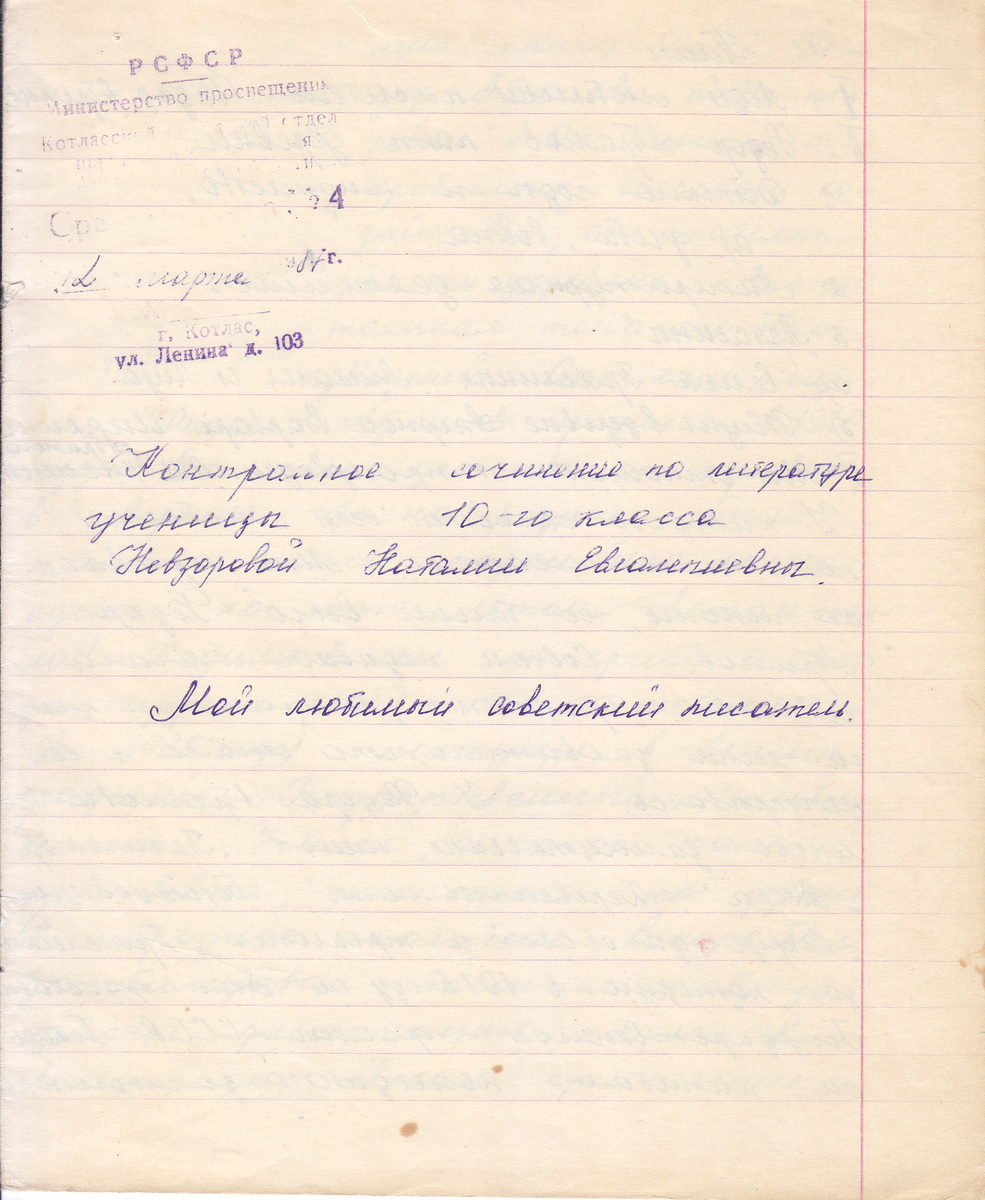 РСФСР
Министерство просвещения
отдел
4
12 марта 1984 г.
г. Котлас,
ул. Ленина д. 103
Контрольное сочинение по литературе
ученицы 10-го класса
Невзоровой Наталии Евгениевны.
Мой любимый советский писатель.